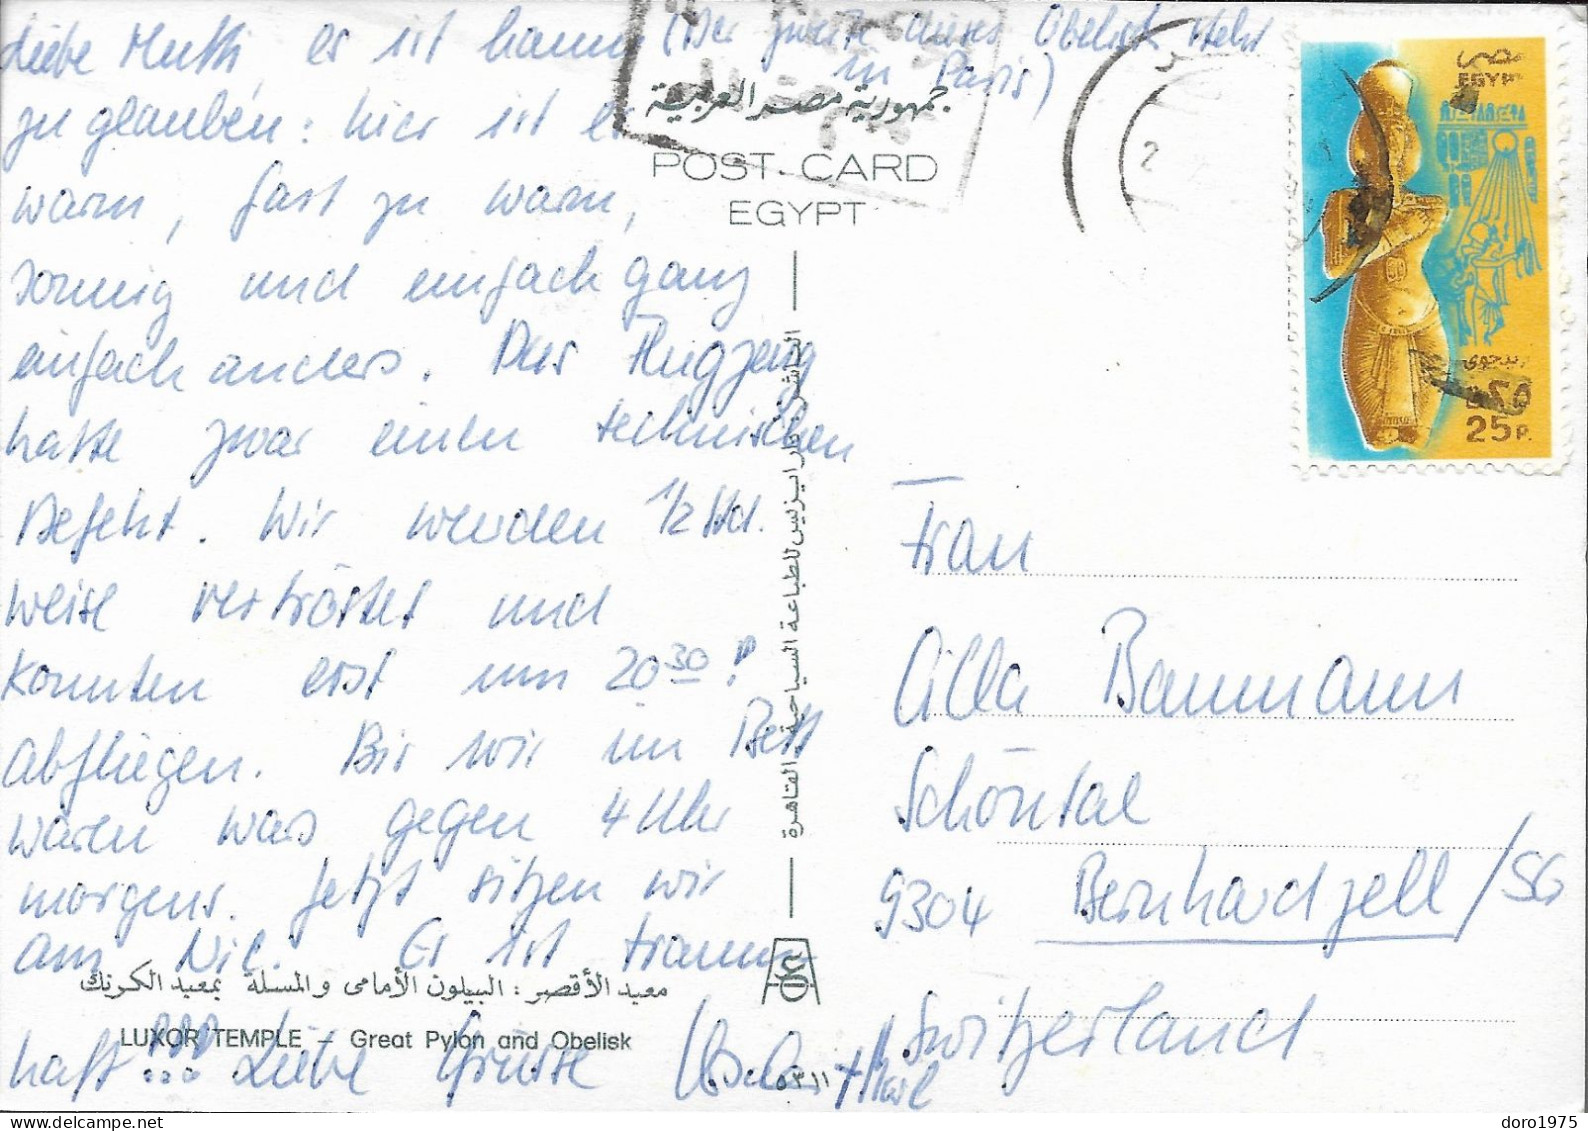 Liebe Mutti, es ist kaum
zu glauben: hier ist es
warm, fast zu warm,
sonnig und einfach ganz
einfach anders. Das Flugzeug
hatte zwar einen technischen
Defekt. Wir wurden 1/2 Std.
weise vertröstet und
konnten erst um 20 30 !
abfliegen. Bis wir im Bett
waren war's gegen 4 Uhr
morgens. Jetzt sitzen wir
am Nil. Es ist traum-
haft !!! Liebe Grüsse
(Der zweite dieses Obelisk steht
in Paris)
جمهورية مصر العربية
POST CARD
EGYPT
الناشر: دار ايزيس للطباعة السياحية القاهرة
معبد الأقصر: البيلون الأمامى والمسلة بمعبد الكرنك
LUXOR TEMPLE – Great Pylon and Obelisk
٥٣١١
مصر
EGYPT
٢٥
25 P.
2
Frau
Cilla Baumann
Schöntal
9304 Bernhardzell/SG
Switzerland
doro1975